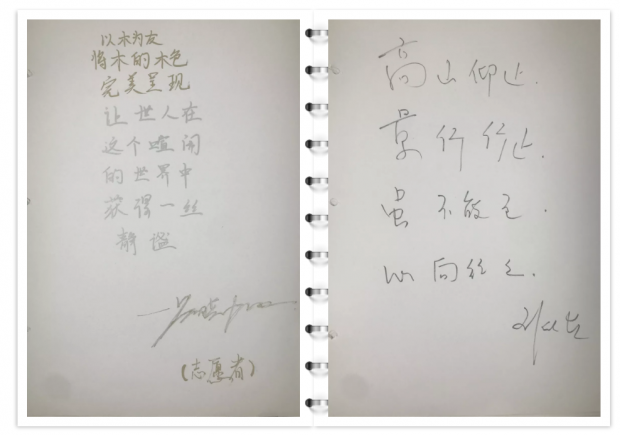 以木为友
将木的本色
完美呈现
让世人在
这个喧闹
的世界中
获得一丝
静谧
(志愿者)
高山仰止.
景行行止.
虽不能至.
心向往之.